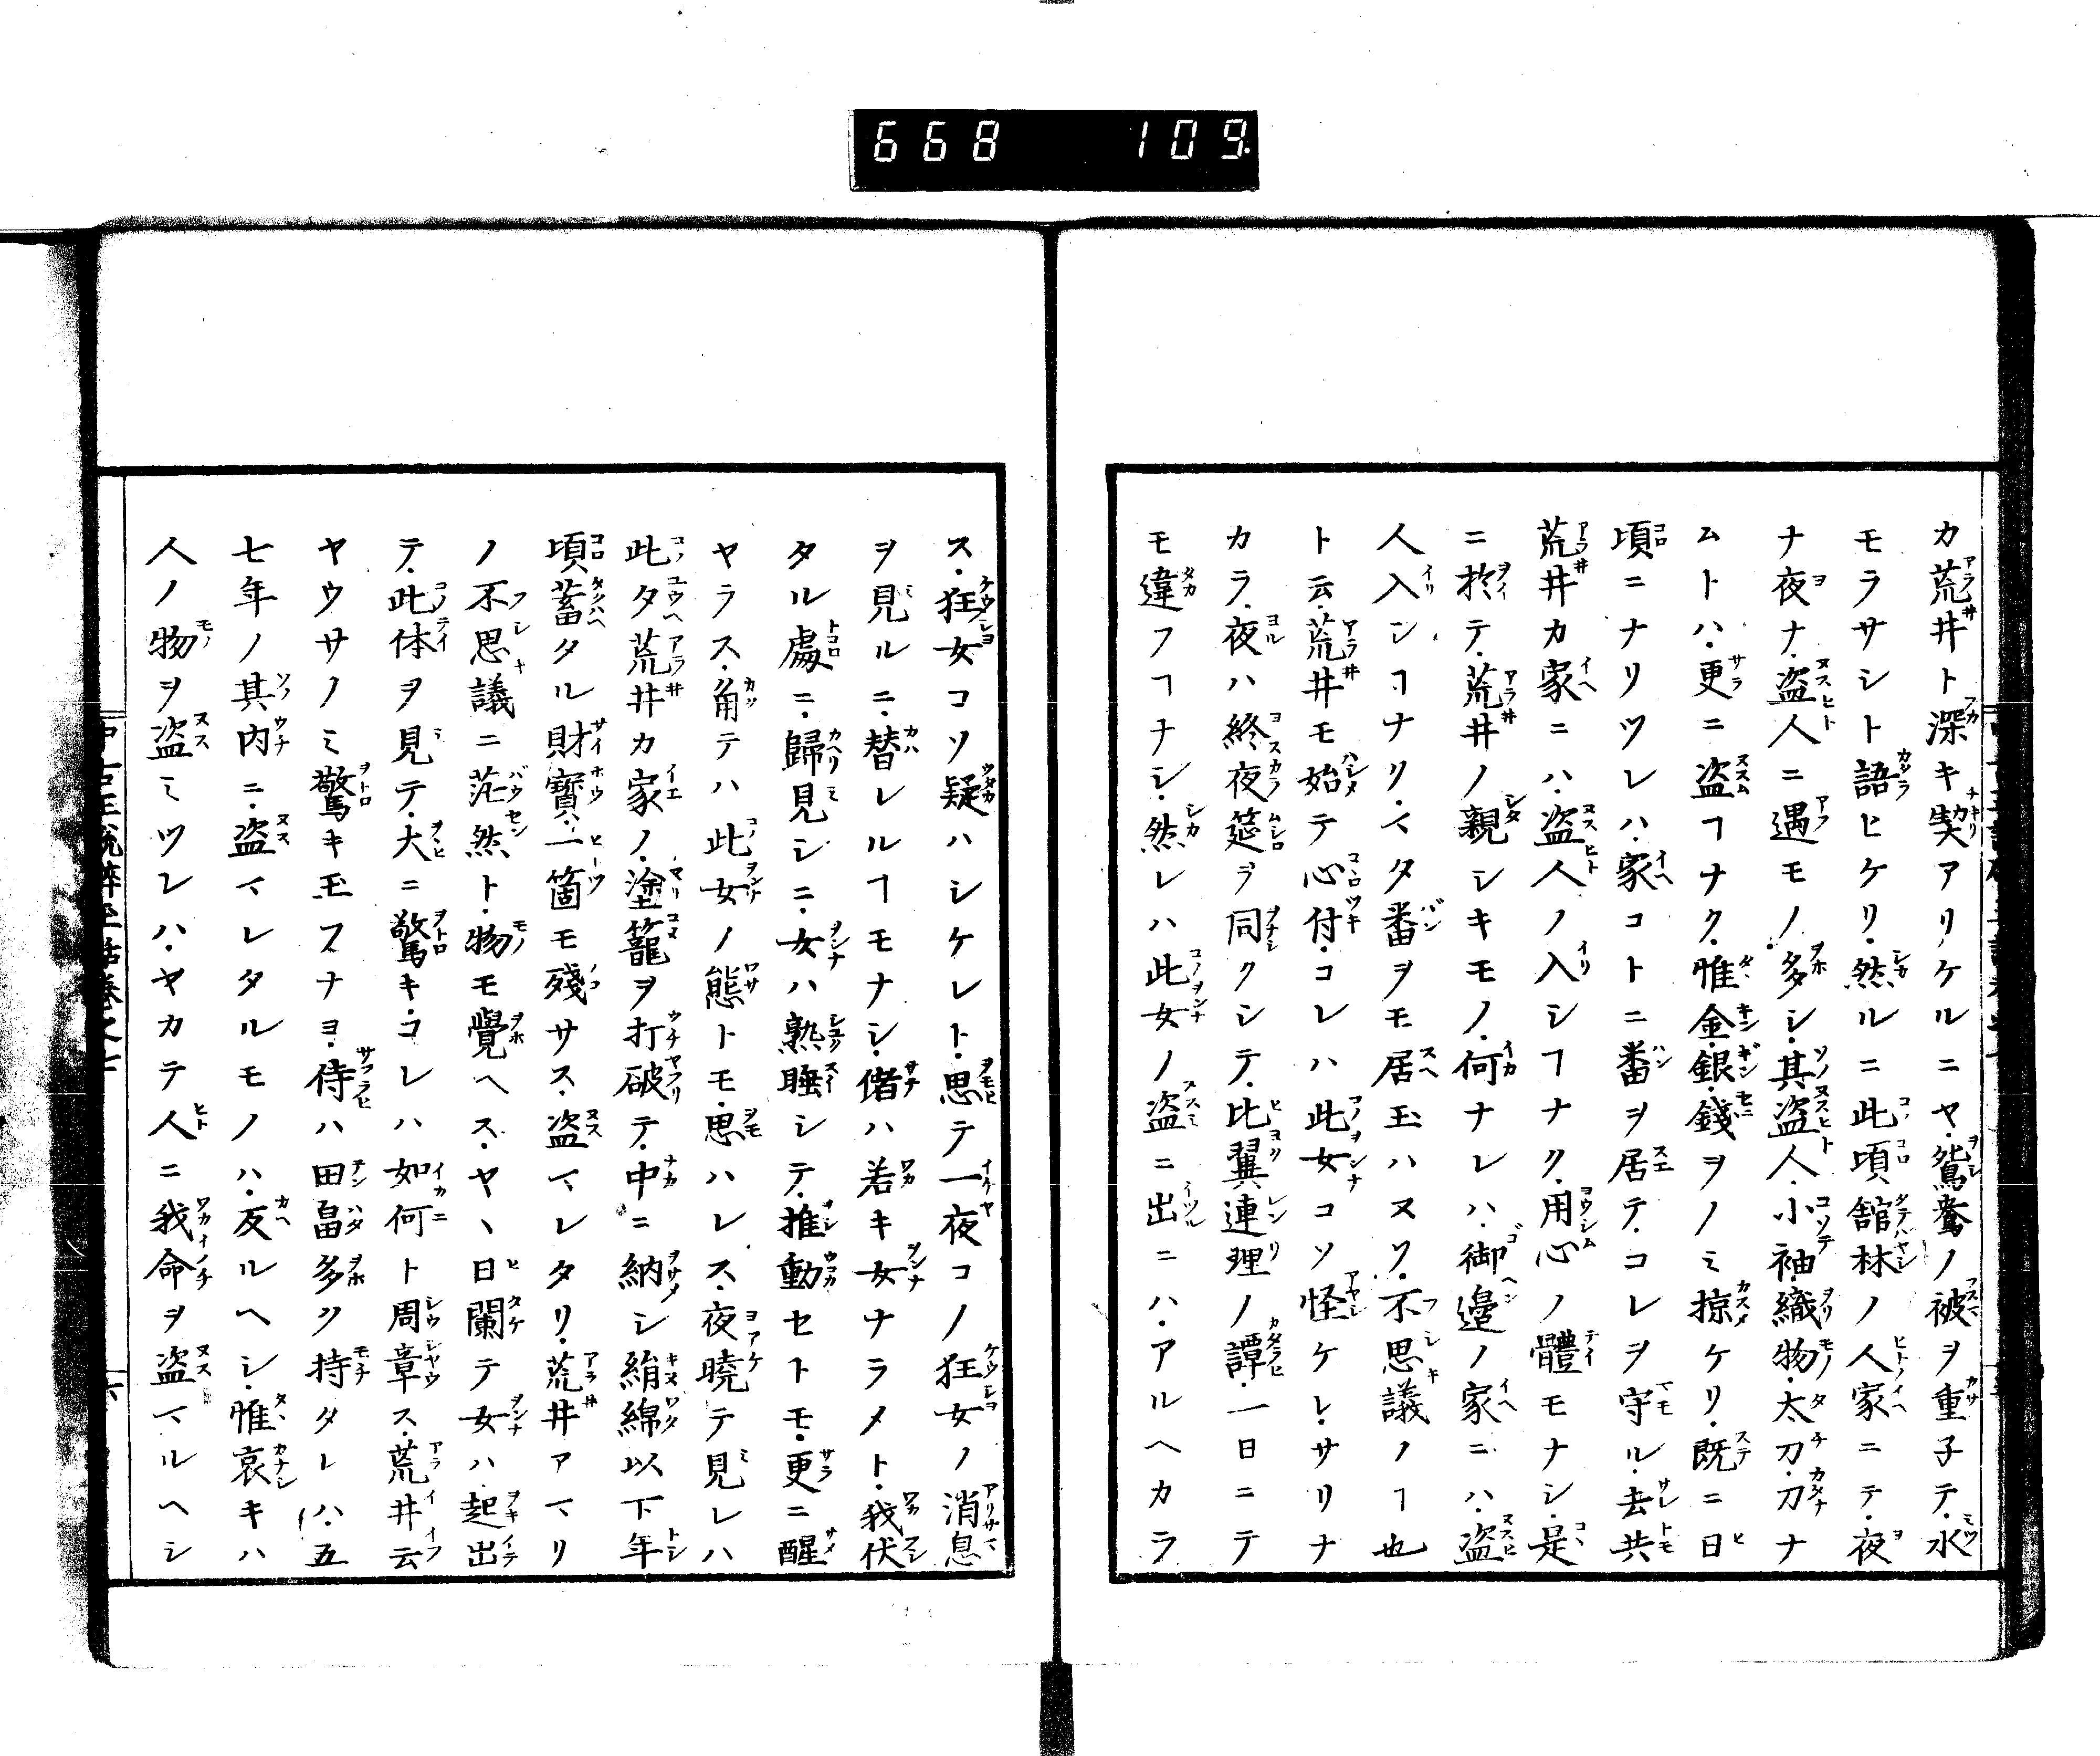 668 109
カ荒井ト深キ契アリケルニヤ鴛鴦ノ被ヲ重子テ水
モラサシト語ヒケリ然ルニ此頃舘林ノ人家ニテ夜
ナ夜ナ盗人ニ遇モノ多シ其盗人小袖織物太刀刀ナ
ムトハ更ニ盗ヿナク惟金銀錢ヲノミ掠ケリ既ニ日
頃ニナリツレハ家コトニ番ヲ居テコレヲ守ル去共
荒井カ家ニハ盗人ノ入シヿナク用心ノ體モナシ是
ニ於テ荒井ノ親シキモノ何ナレハ御邉ノ家ニハ盗
人入ンヿナリマタ番ヲモ居玉ハヌソ不思議ノヿ也
ト云荒井モ始テ心付コレハ此女コソ怪ケレサリナ
カラ夜ハ終夜筵ヲ同クシテ比翼連理ノ譚一日ニテ
モ違フヿナシ然レハ此女ノ盗ニ出ニハアルヘカラ
ス狂女コソ疑ハシケレト思テ一夜コノ狂女ノ消息
ヲ見ルニ替レルヿモナシ偖ハ若キ女ナラメト我伏
タル處ニ歸見シニ女ハ熟睡シテ推動セトモ更ニ醒
ヤラス角テハ此女ノ態トモ思ハレス夜曉テ見レハ
此夕荒井カ家ノ塗籠ヲ打破テ中ニ納シ絹綿以下年
頃蓄タル財寳一箇モ殘サス盗マレタリ荒井アマリ
ノ不思議ニ茫然ト物モ覺ヘスヤヽ日闌テ女ハ起出
テ此体ヲ見テ大ニ驚キコレハ如何ト周章ス荒井云
ヤウサノミ驚キ玉フナヨ侍ハ田畠多ク持タレハ五
七年ノ其内ニ盗マレタルモノハ反ルヘシ惟哀キハ
人ノ物ヲ盗ミツレハヤカテ人ニ我命ヲ盗マルヘシ